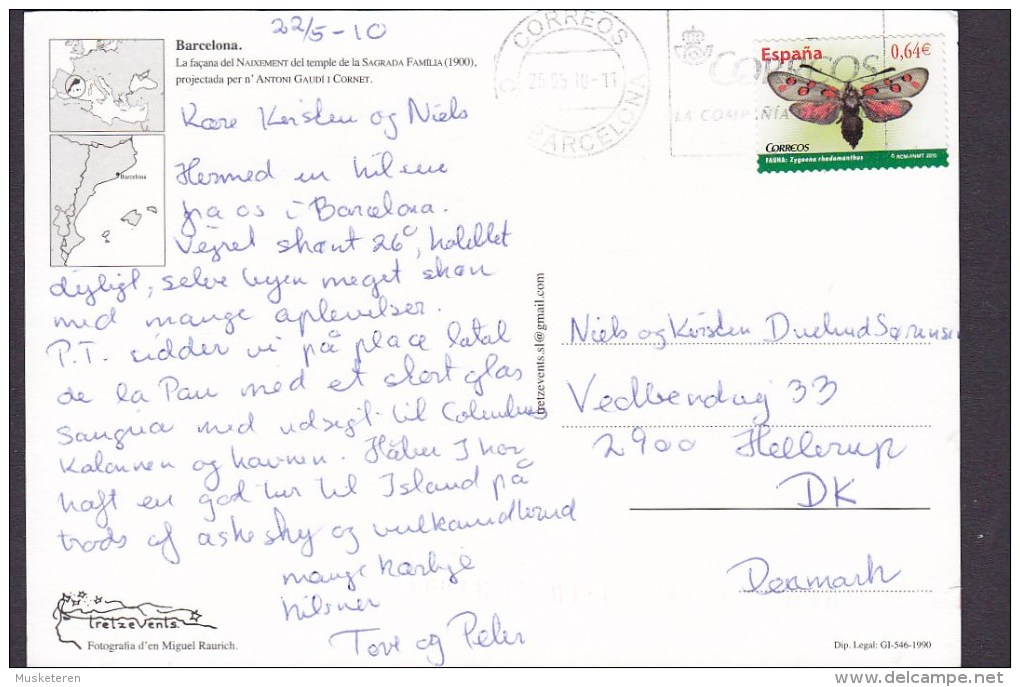 22/5-10
Barcelona.
La façana del NAIXEMENT del temple de la SAGRADA FAMÍLIA (1900),
projectada per n' ANTONI GAUDÍ I CORNET.
Barcelona
Kære Kirsten og Niels
Hermed en hilsen
fra os i Barcelona.
Vejret skønt 26°, hotellet
dejligt, selve byen meget skøn
med mange oplevelser.
P.T. sidder vi på place
de la Pau med et stort glas
Sangria med udsigt til Columbus
Kolonnen og havnen. Håber I har
haft en god tur til Island på
trods af askesky og vulkanudbrud
mange kærlige
hilsner
Tove og Peter
CORREOS
26.05.10-17
BARCELONA
CORREOS
LA COMPAÑÍA
España
0,64€
CORREOS
FAUNA: Zygaena rhadamanthus
© RCM-FNMT 2010
tretzevents.sl@gmail.com
Niels og Kirsten Duelund Sørensen
Vedbendvej 33
2900 Hellerup
DK
Denmark
tretzevents.
Fotografia d'en Miguel Raurich.
Dip. Legal: GI-546-1990
Musketeren
delcampe.net